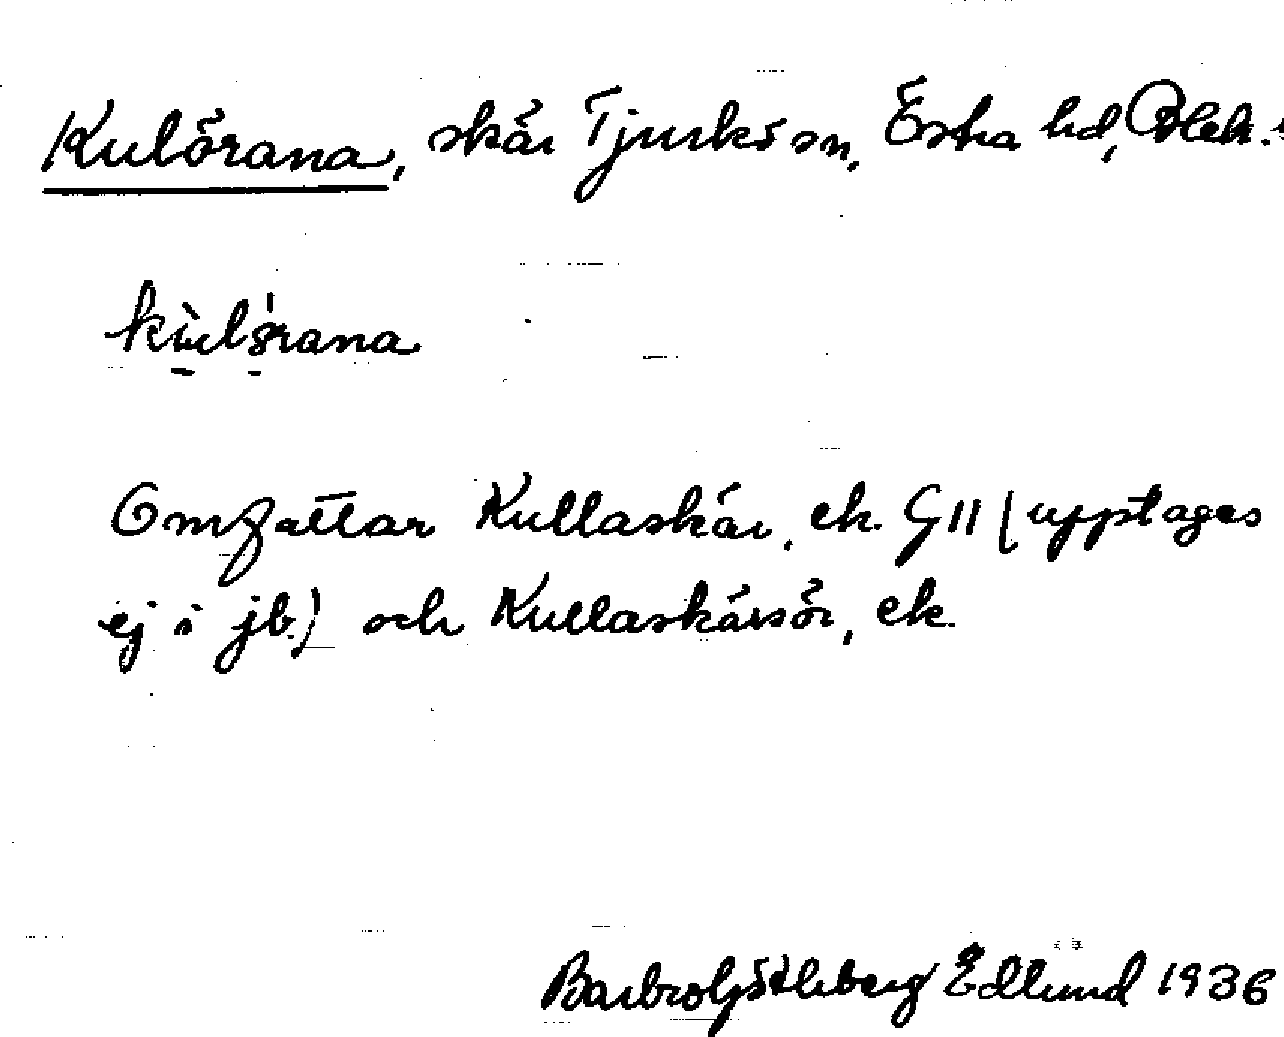 Kulörana, skär Tjurkö sn, Östra hd, Blek.
kùlörana
Omfattar Kullaskär, ek. G11 (upptages
ej i jb.) och Kullaskärsör, ek.
Barbro Götleberg Edlund 1936